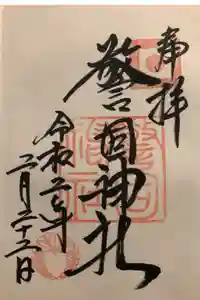 奉拝
警固神社
令和二年
二月二十三日